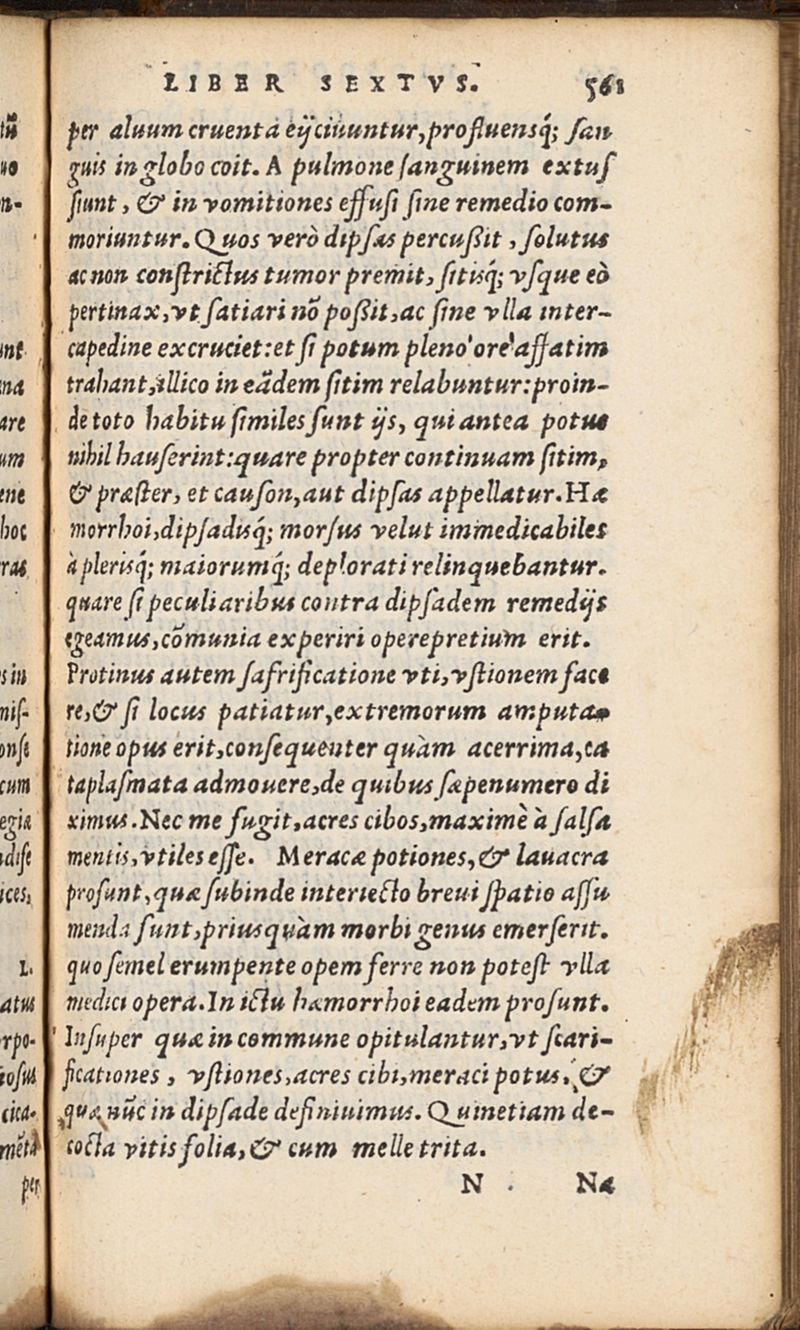 LIBER SEXTVS. 561
per aluum cruenta eijciuuntur, profluensq́; san
guis in globo coit. A pulmone sanguinem extus
siunt, & in vomitiones effusi sine remedio com-
moriuntur. Quos verò dipsas percußit, solutus
ac non constrictus tumor premit, sitisq́; vsque eò
pertinax, vt satiari nõ poßit, ac sine vlla inter-
capedine excruciet: et si potum pleno ore affatim
trahant, illico in eãdem sitim relabuntur: proin-
de toto habitu similes sunt ijs, qui antea potus
nihil hauserint: quare propter continuam sitim,
& præster, et causon, aut dipsas appellatur. Hæ
morrhoi, dipsadisq́; morsus velut immedicabiles
à plerisq́; maiorumq́; deplorati relinquebantur.
quare si peculiaribus contra dipsadem remedijs
egeamus, cõmunia experiri operepretium erit.
Protinus autem safrificatione vti, vstionem face
re, & si locus patiatur, extremorum amputa-
tione opus erit, consequenter quàm acerrima, ca
taplasmata admouere, de quibus sæpenumero di
ximus. Nec me fugit, acres cibos, maximè à salsa
mentis, vtiles esse. Meracæ potiones, & lauacra
prosunt, quæ subinde interiecto breui spatio assu
menda sunt, priusquàm morbi genus emerserit.
quo semel erumpente opem ferre non potest vlla
medici opera. In ictu hæmorrhoi eadem prosunt.
Insuper quæ in commune opitulantur, vt scari-
ficationes, vstiones, acres cibi, meraci potus, &
quæ nũc in dipsade definiuimus. Quinetiam de-
cocta vitis folia, & cum melle trita.
N Na